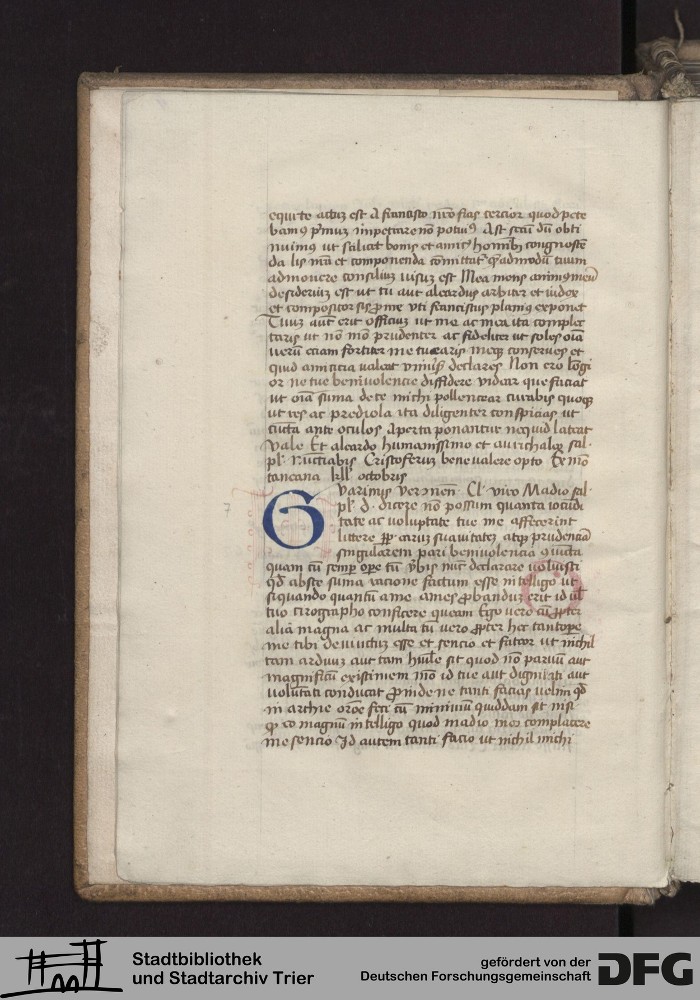 equite actuz est A francisco nr̄o frās tercior quod pete
bamꝯ pͥmuz impetrare nō potuiꝰ Ast
nuimꝯ ut scilicet bonis et amicͥ hoīmībꝫ congnoscē
da lis mīa et componenda comittat̄ qͣ admodū tuum
admonere consiliuz visuz est Mea mens animꝯ meū
desideriuz est ut tu aut aleardus arbiter et iudex
et compositor sis ꝓ me vti franciscus planiꝯ exponet
Tuuz aūt erit officiuz ut me ac mea ita complec
taris ut nō mō prudenter ac fideliter ut soles oīa
verū eciam fortiter me tuearis meqꝫ conserues et
quid amicitia valeat declares Non ero lōgi
or ne tue beniuolencie diffidere videar que faciat
ut oīa sūma de te michi pollencear curabis quoqꝫ
ut res ac prediola ita diligenter conspicias ut
cūcta ante oculos aperta ponantur ne quid lateat
Vale Et aleardo humanissimo et aurichalco sal·
pl· nūctiabis Cristoferuz bene valere opto Ex mō
tancana kl̄l octobris
Gvarinus veronen̄· Cl· viro Madio sal·
pl· d· dicere nō possum quanta iocūdi
tate ac voluptate tue me affecerint
littere ꝓp̄ earuz suauitatez atqꝫ prudenciā
singularem pari beniuolencia ꝯiūctā
quam cū semꝑ oꝑe tū v̄bis nūc declarare voluisti
qd̄ abs te sūma racione factum esse intelligo ut
si quando quantū a me ames ꝓbanduz erit id ul̄
tuo cirographo conficere queam Ego vero cū ꝓpter
alia magna ac multa tū vero ꝓpter hec tantopē
me tibi deuinctuz esse et sencio et fateor ut nichil
tam arduuz aut tam hūile sit quod nō paruū aut
magnificū existimem mō id tue aut dignitati aut
volūtati conducat ꝓinde ne tanti facias velim qd̄
in archie orōe feci cū miniuū quiddam sit nisi
qꝫ eo magnū intelligo quod madio meo complacere
me sencio Id autem tanti facio ut nichil michi
Stadtbibliothek
und Stadtarchiv Trier
gefördert von der
Deutschen Forschungsgemeinschaft
DFG